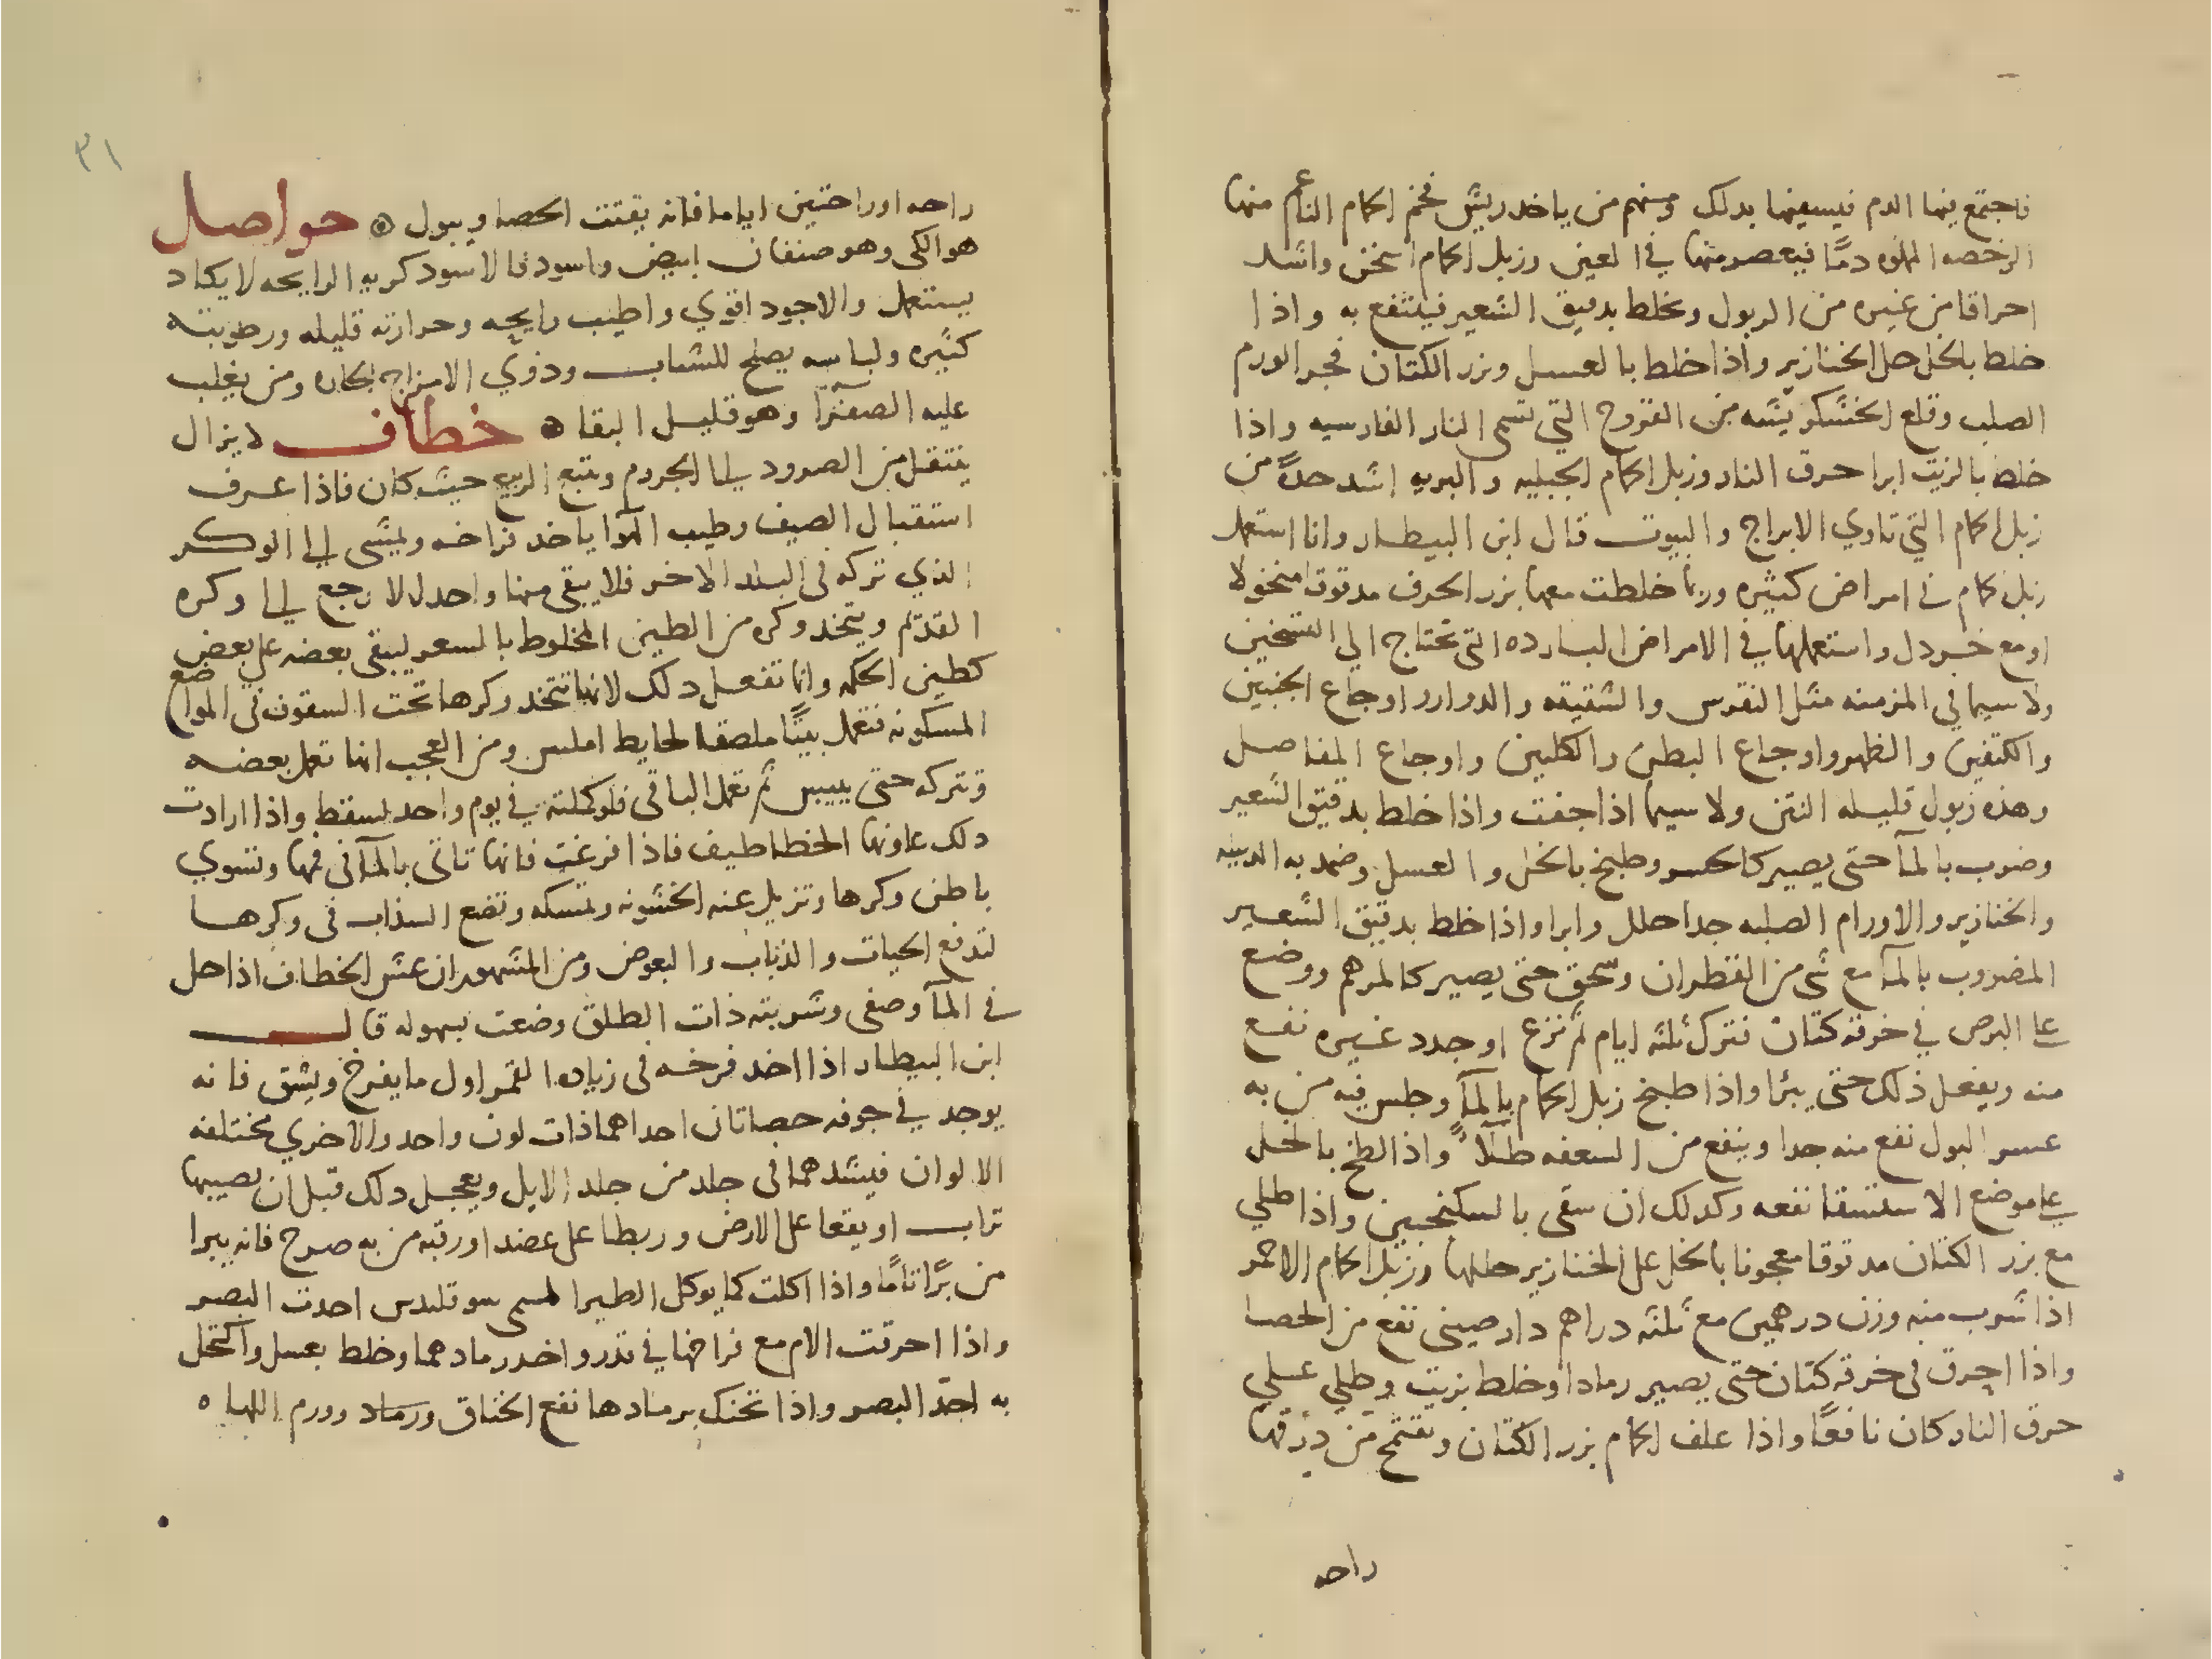 فاجتمع فيها الدم فيسعيها بدلك ومنهم من ياخد ريش فخم الحمام الناعم منها
الرخصه المملوه دمًا فيعصر منها في العين وزبل الحمام اسخن واشد
احراقا من غيره من الزبول ويخلط بدقيق الشعير فينتفع به واذا
خلط بالخل حلل الخنازير واذا خلط بالعسل وبزر الكتان فجر الورم
الصلب وقلع الخشكريشه من القروح التي تسمى النار الفارسيه واذا
خلط بالزيت ابرا حرق النار وزبل الحمام الجبليه والبريه اشد حدةً من
زبل الحمام التي تاوي الابراج والبيوت قال ابن البيطار وانا استعمل
زبل الحمام في امراض كثيره وربما خلطت معها بزر الحرف مدقوقا منخولا
او مع خردل واستعملها في الامراض البارده التي تحتاج الي التسخين
ولا سيما في المزمنه مثل النقرس والشقيقه والدوار واوجاع الجنبين
والكتفين والظهر واوجاع البطن والكليين واوجاع المفاصل
وهذه زبول قليله النتن ولا سيما اذا جفت واذا خلط بدقيق الشعير
وضرب بالمآ حتى يصير كالحسو وطبخ بالخل والعسل وضمد به الدبيله
والخنازير والاورام الصلبه جدا حلل وابرا واذا خلط بدقيق الشعير
المضروب بالمآ مع شي من القطران وسحق حتى يصير كالمرهم ووضع
علي البرص في خرقة كتان فترك ثلثه ايام ثم نزع او جدد غيره نفع
منه ويفعل ذلك حتى يبرا واذا طبخ زبل الحمام بالمآ وجلس فيه من به
عسر البول نفع منه جدا وينفع من السعفه طلآً واذا لطخ بالخل
علي موضع الاستسقا نفعه وكدلك ان سقى بالسكنجبين واذا طلي
مع بزر الكتان مدقوقا معجونا بالخل على الخنازير حللها وزبل الحمام الاحمر
اذا شرب منه وزن درهمين مع ثلثه دراهم دارصينى نفع من الحصا
واذا احرق في خرقة كتان حتى يصير رمادا وخلط بزيت وطلي علي
حرق النار كان نافعًا واذا علف الحمام بزر الكتان وتقتمح من درقها
راحه
٣١
راحه او راحتين اياما فانه يفتت الحصا ويبول ۞ حواصل
هو الكي وهو صنفان ابيض واسود فالاسود كريه الرايحه لا يكاد
يستعمل والاجود اقوي واطيب رايحه وحرارته قليله ورطوبته
كثيره ولباسه يصلح للشباب وذوي الامزاج الحاره ومن يغلب
عليه الصفرآ وهو قليل البقا ۞ خطاف لا يزال
ينتقل من الصرود الي الجروم ويتبع الربيع حيث كان فاذا عرف
استقبال الصيف وطيب الهوا ياخد فراخه ويمشى الي الوكر
الذي تركه فى البلد الاخر فلا يبقى منها واحد الا رجع الي وكره
القديم ويتخد وكره من الطين المخلوط بالسعر ليبقى بعضه على بعض
كطين الحكمه وانما تفعل دلك لانها تتخد وكرها تحت السقوف في المواضع
المسكونه فتعمل بيتًا ملصقا لحايط املس ومن العجب انها تعمل بعضه
وتتركه حتى ييبس ثم تعمل الباقى فلو كملته في يوم واحد لسقط واذا ارادت
دلك عاونها الخطاطيف فاذا فرغت فانها تاتى بالمآ فى فمها وتسوي
باطن وكرها وتزيل عنه الخشونه وتمسكه وتضع السذاب فى وكرها
لتدفع الحيات والذباب والبعوض ومن المشهور ان عش الخطاف اذا حل
في المآ وصفى وشربته ذات الطلق وضعت بسهوله قال
ابن البيطار اذا اخد فرخه فى زياده القمر اول ما يفرخ ويشق فانه
يوجد في جوفه حصاتان احداهما ذات لون واحد والاخري مختلفه
الالوان فيشدهما فى جلد من جلد الايل ويعجل دلك قبل ان يصيبها
تراب او يقعا على الارض وربطا على عضد او رقبه من به صرح فانه يبرا
من برًا تامًا واذا اكلت كما يوكل الطير المسمى سوقليدس احدت البصر
واذا احرقت الام مع فراخها في قدر واخد رمادهما وخلط بعسل واكتحل
به احدّ البصر واذا تحنك برمادها نفع الخناق ورماد وورم اللهاه